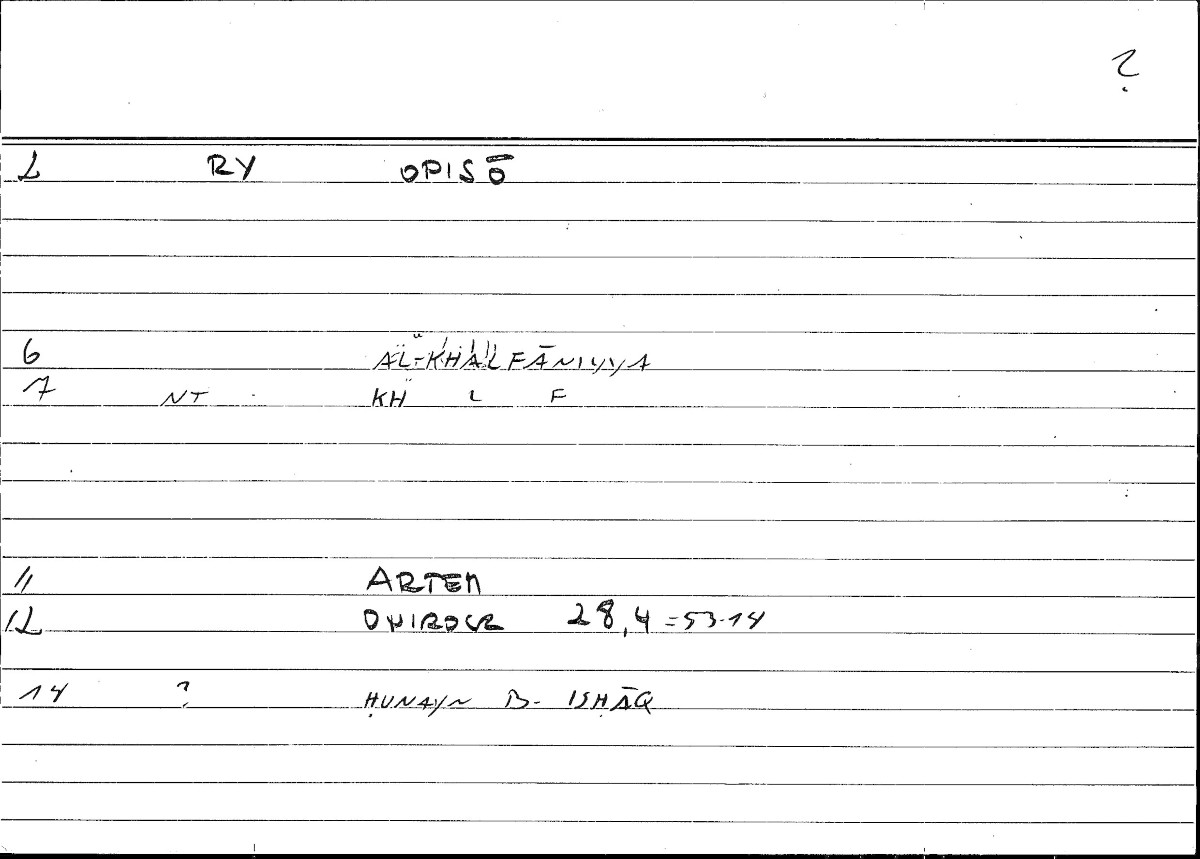 ?
2 RY OPISŌ
6 AL-KHALFĀNIYYA
7 NT KH L F
11 ARTEM
12 ONIROCR 28,4 = 53.14
14 ? ḤUNAYN B. ISḤĀQ